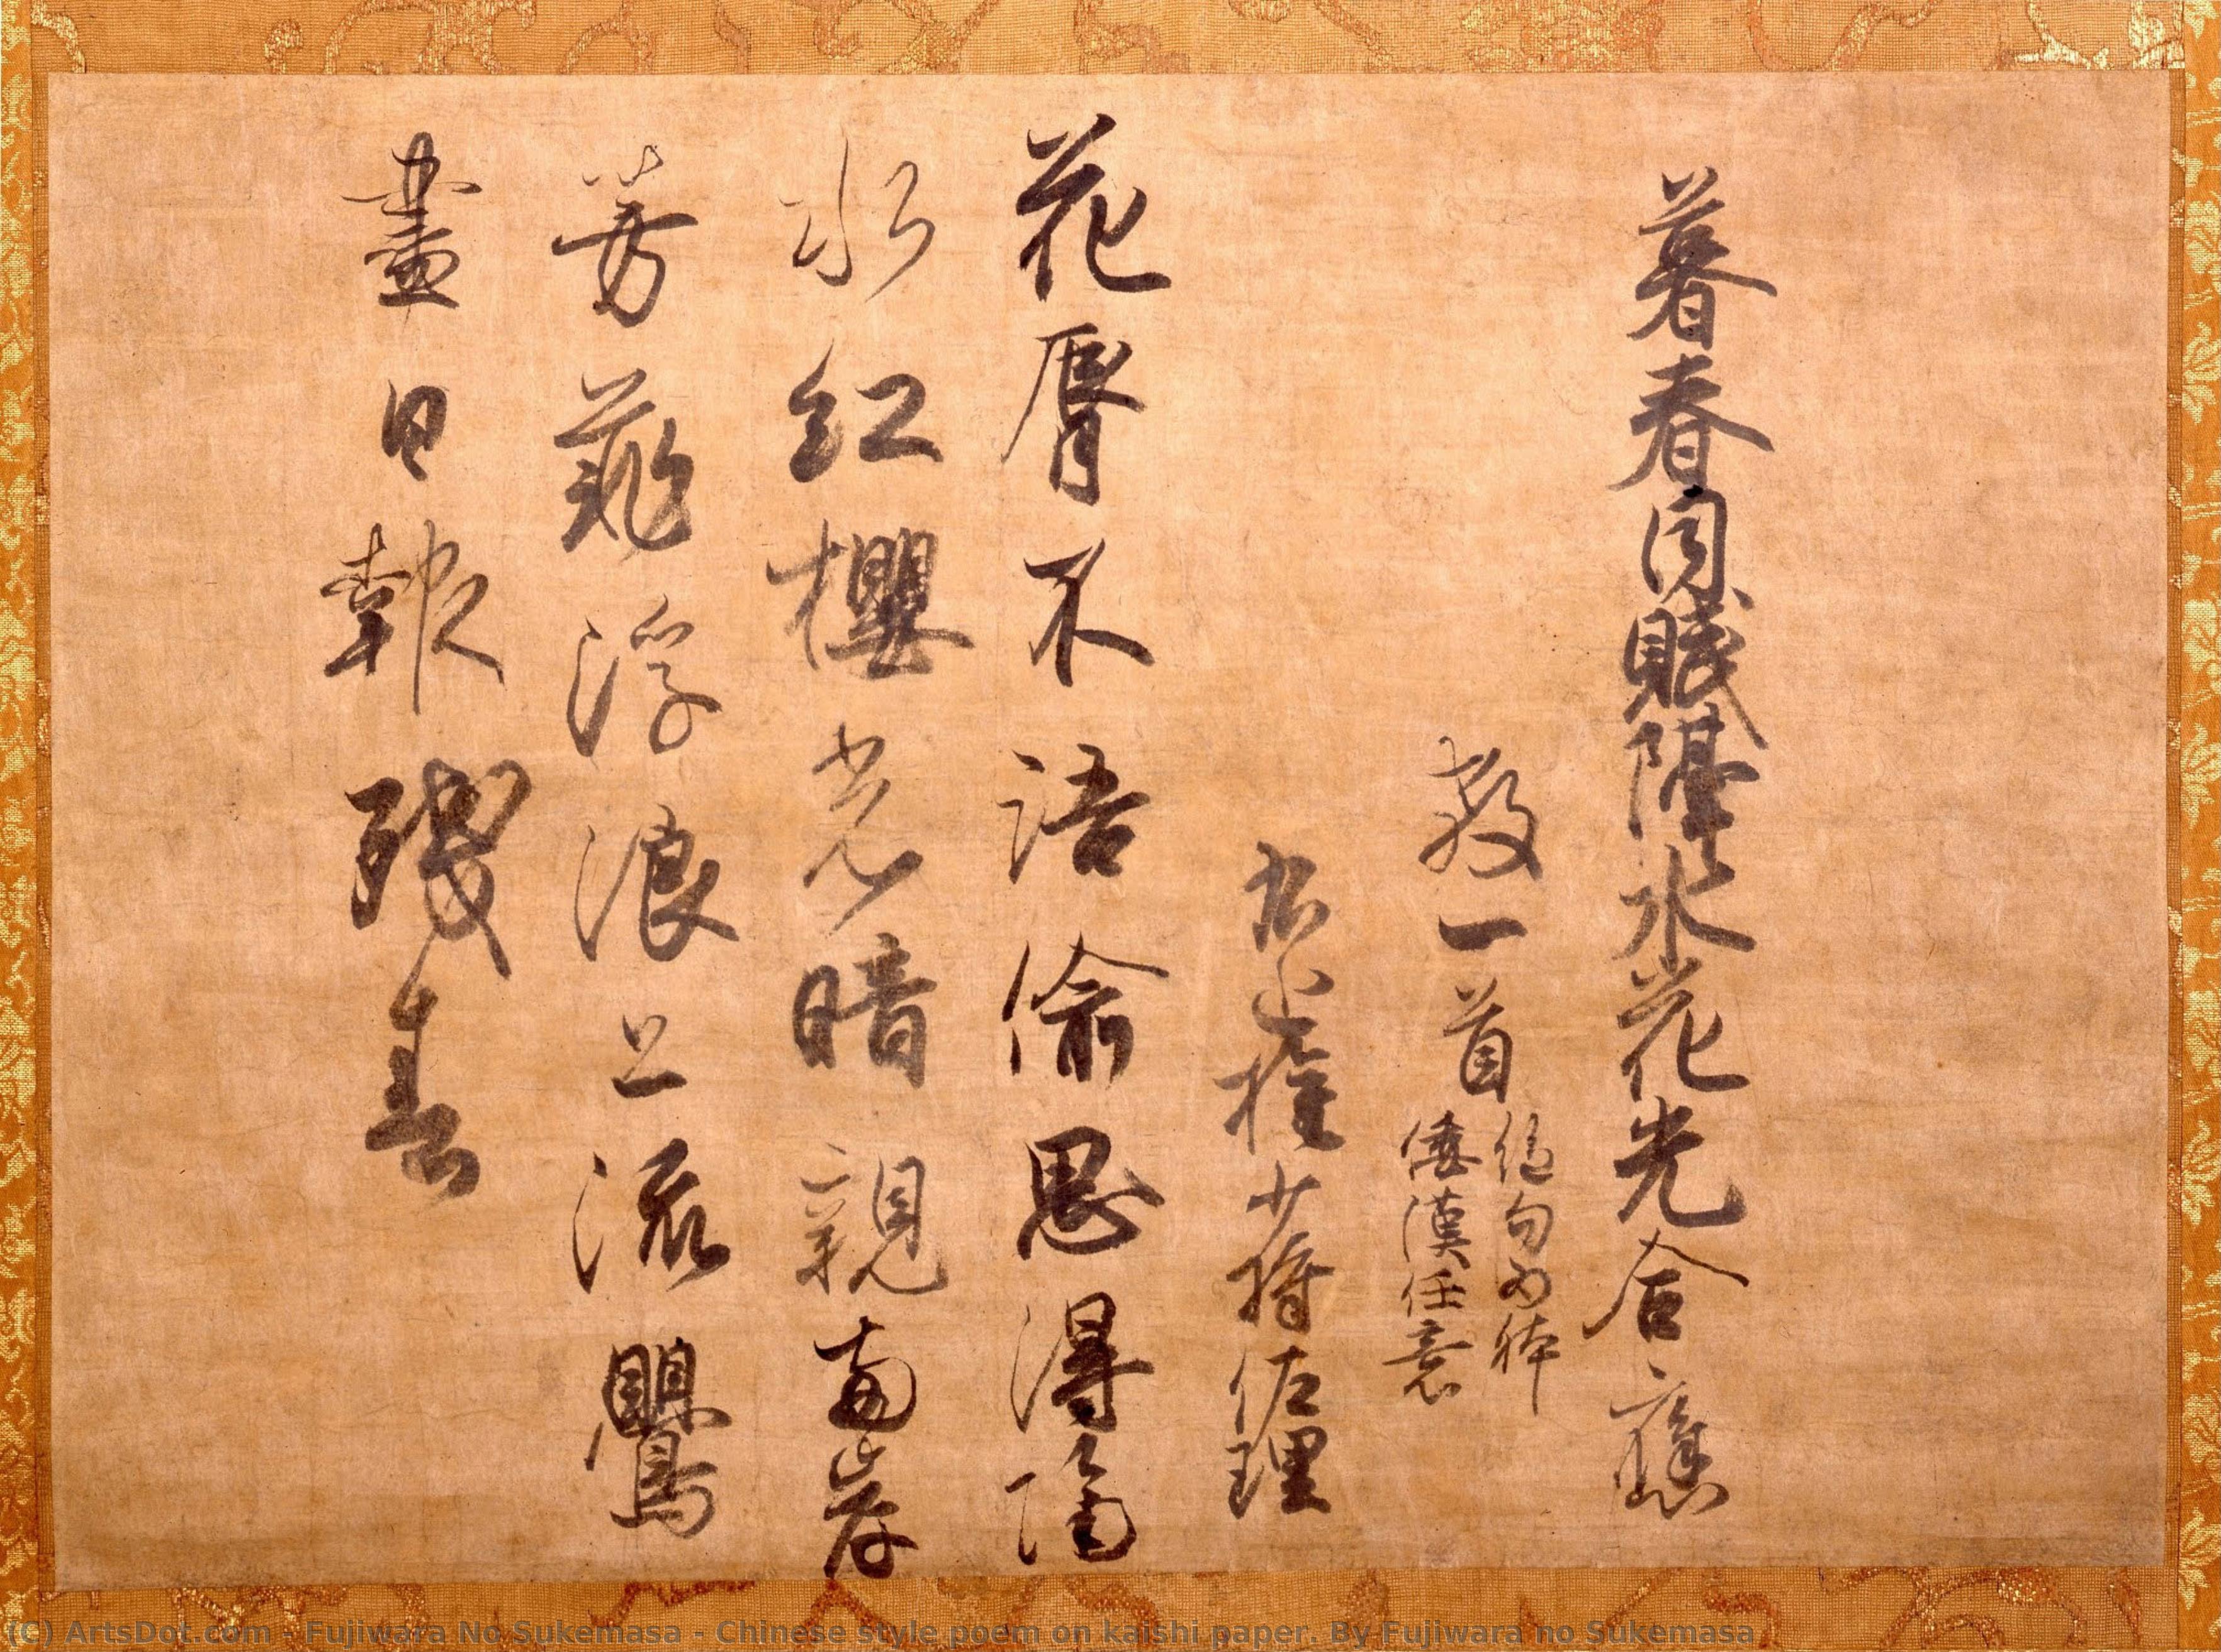 暮春同賦隔水花光合應
教一首絶句為体
倭漢任意
右近権少将佐理
花脣不語偸思得隔
水紅櫻光暗親両岸
芳菲浮浪上流鶯
盡日報残春
(C) ArtsDot.com - Fujiwara No Sukemasa - Chinese style poem on kaishi paper. By Fujiwara no Sukemasa